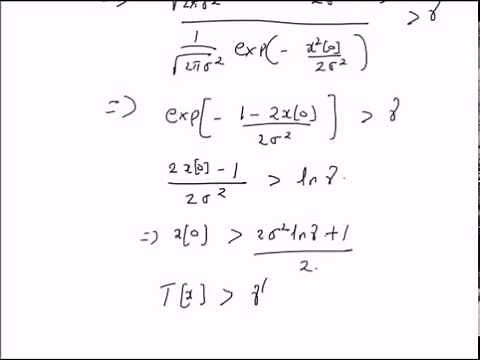 1/√2πσ² exp(- x²[0]/2σ²) > γ
=> exp[- 1-2x[0]/2σ²] > γ
2x[0]-1/2σ² > ln γ.
=> x[0] > 2σ² ln γ + 1/2.
T[x] > γ'